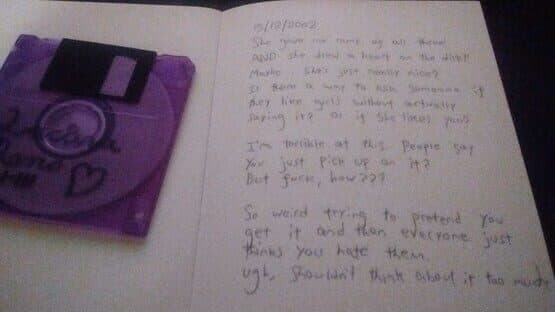 15/12/2002
She gave me of all these!
AND she drew a heart on the disk!!
Maybe she's just really nice?
Is there a way to ask someone if
they like girls without actually
saying it? Or if she likes you?
I'm terrible at this. People say
You just pick up on it?
But fuck, how???
So weird trying to pretend you
get it and then everyone just
thinks you hate them.
ugh, shouldn't think about it too much